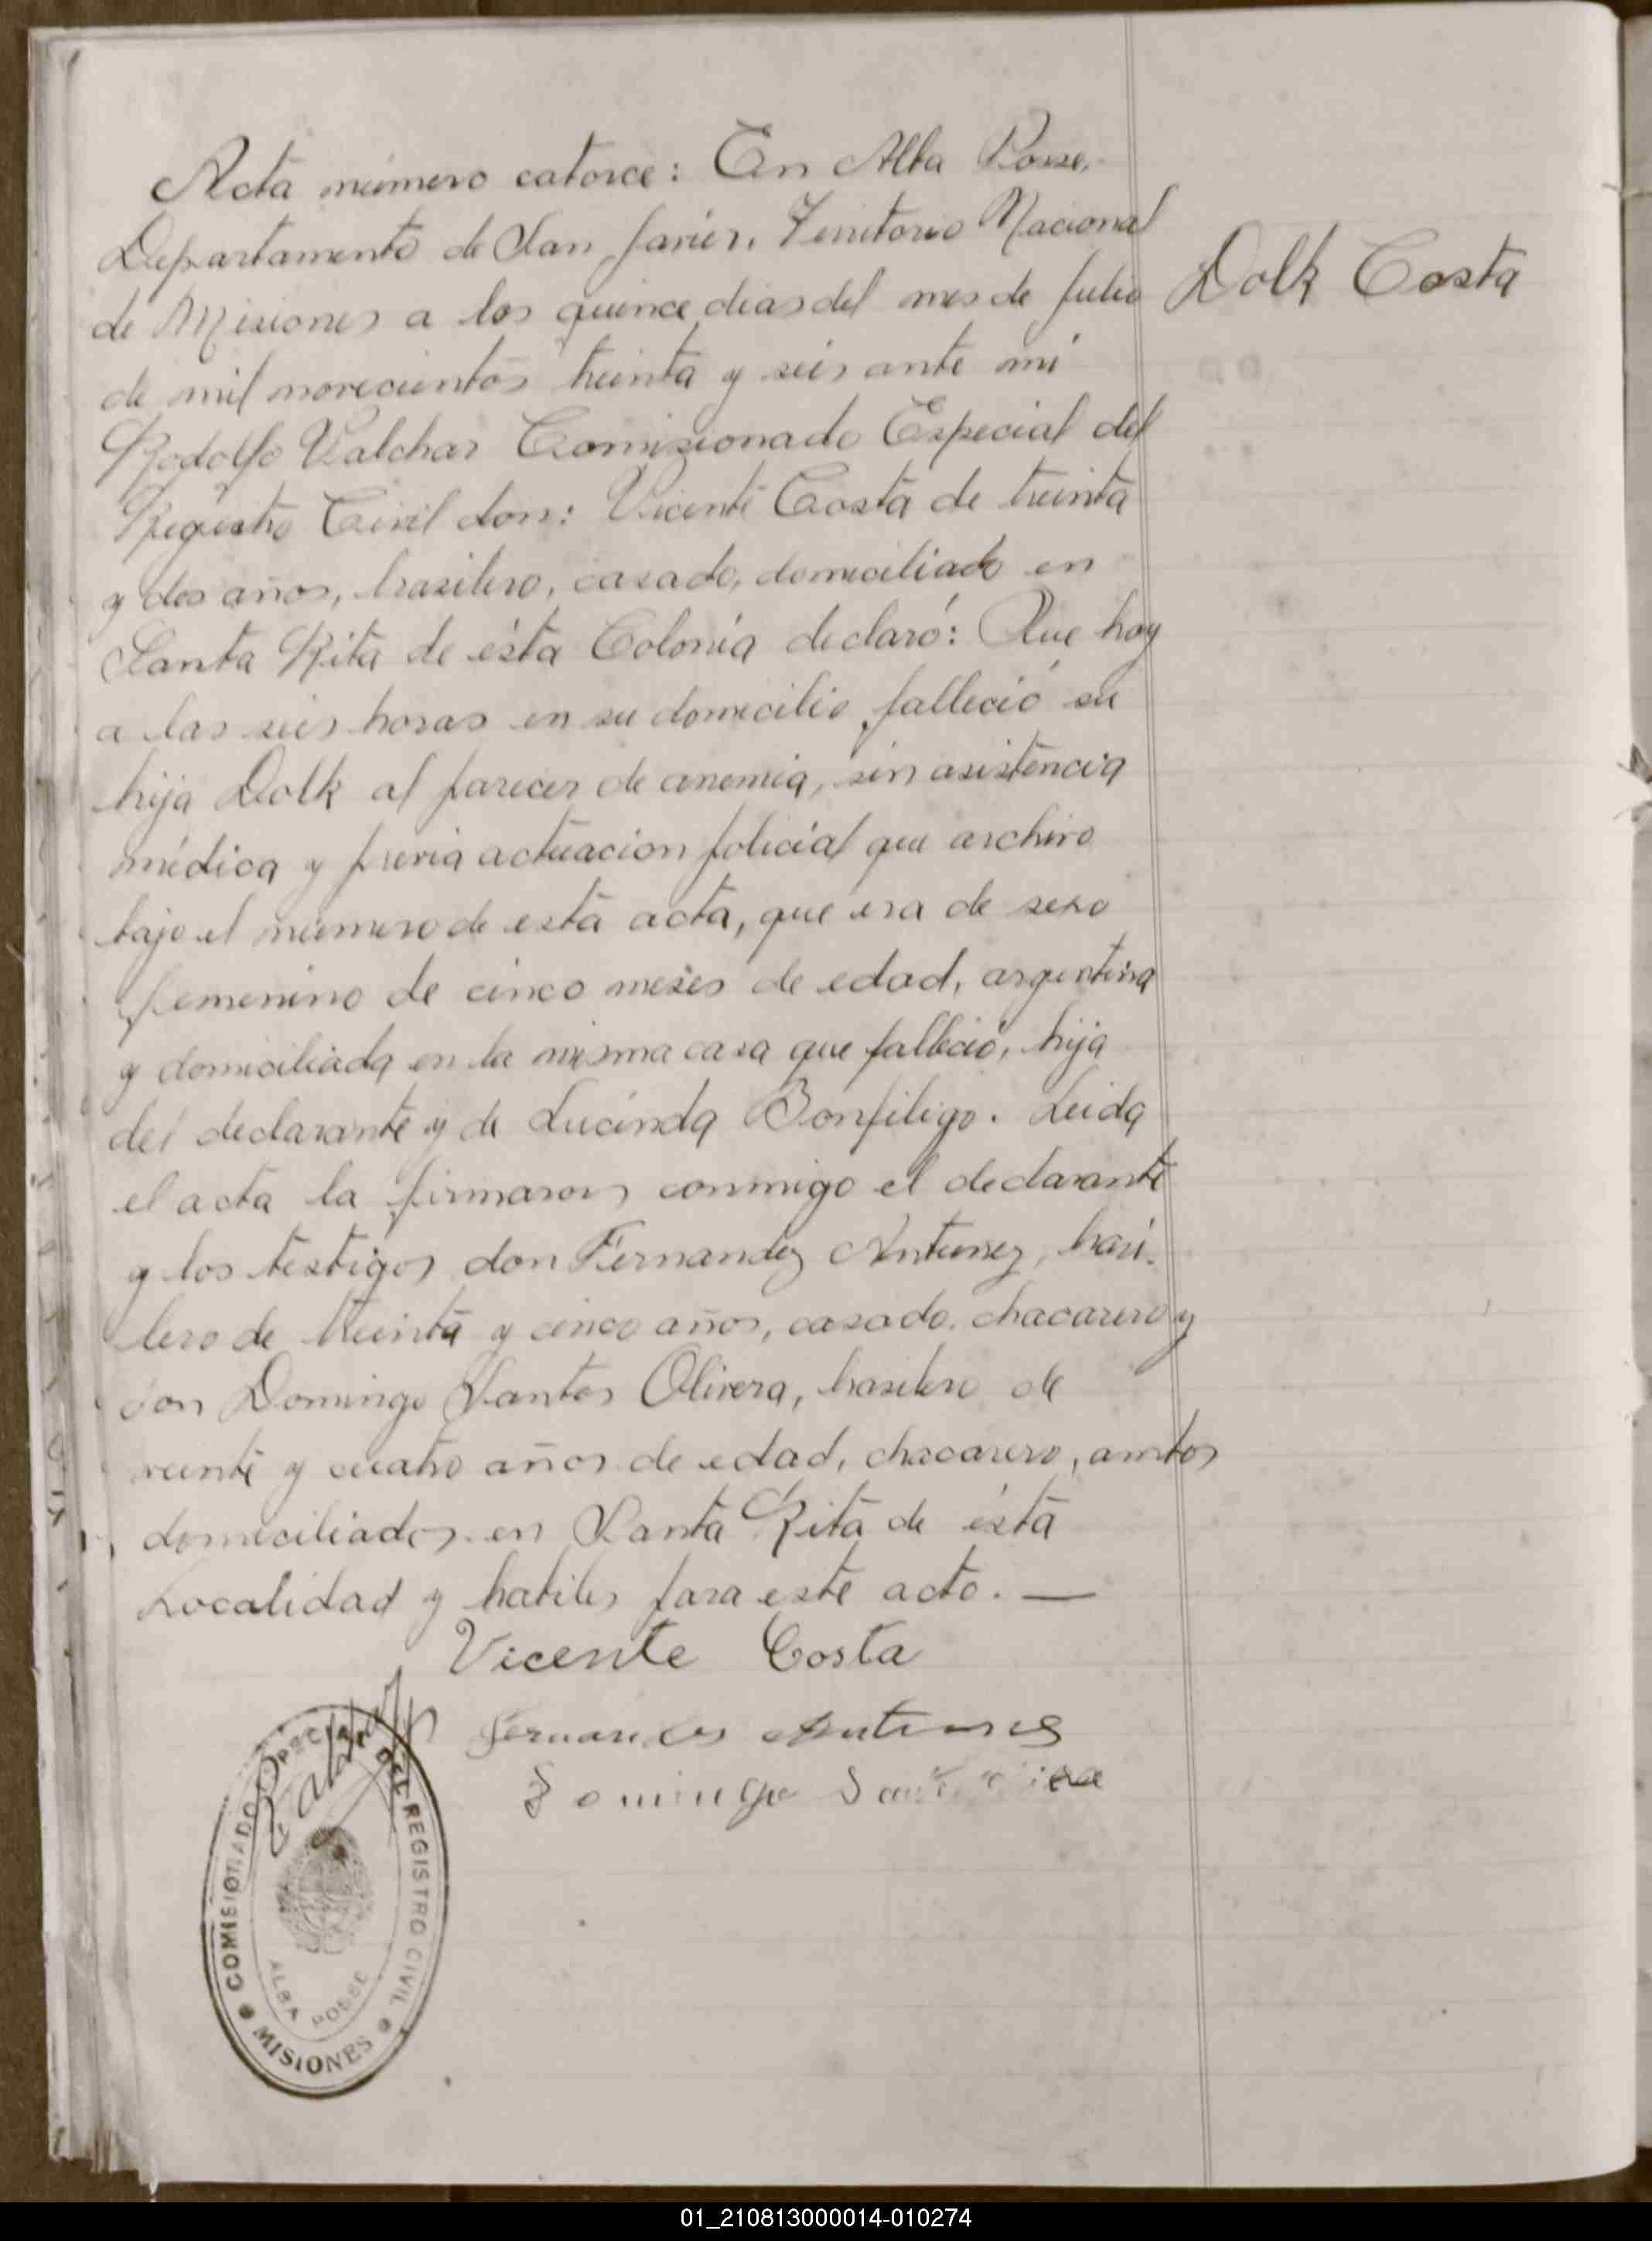 Acta número catorce: En Alba Posse,
Departamento de San Javier, Territorio Nacional
de Misiones a los quince dias del mes de Julio
Dolk Costa
de mil novecientos treinta y seis ante mi
Rodolfo Valchar Comisionado Especial del
Registro Civil don: Vicente Costa de treinta
y dos años, brasilero, casado, domiciliado en
Santa Rita de ésta Colonia declaró: Que hoy
a las seis horas en su domicilio falleció su
hija Dolk al parecer de anemia, sin asistencia
médica y previa actuacion policial que archivo
bajo el número de esta acta, que era de sexo
femenino de cinco meses de edad, argentina
y domiciliada en la misma casa que falleció, hija
del declarante y de Lucinda Bonfiligo. Leida
el acta la firmaron conmigo el declarante
y los testigos don Fernandez Antunez, brasi-
lero de treinta y cinco años, casado, chacarero y
don Domingo Santos Olivera, brasilero de
veinte y cuatro años de edad, chacarero, ambos
domiciliados en Santa Rita de ésta
Localidad y habiles para este acto. —
Vicente Costa
Fernandes Antunes
Domingo
COMISIONADO ESPECIAL DEL REGISTRO CIVIL
ALBA POSSE
MISIONES
01_210813000014-010274